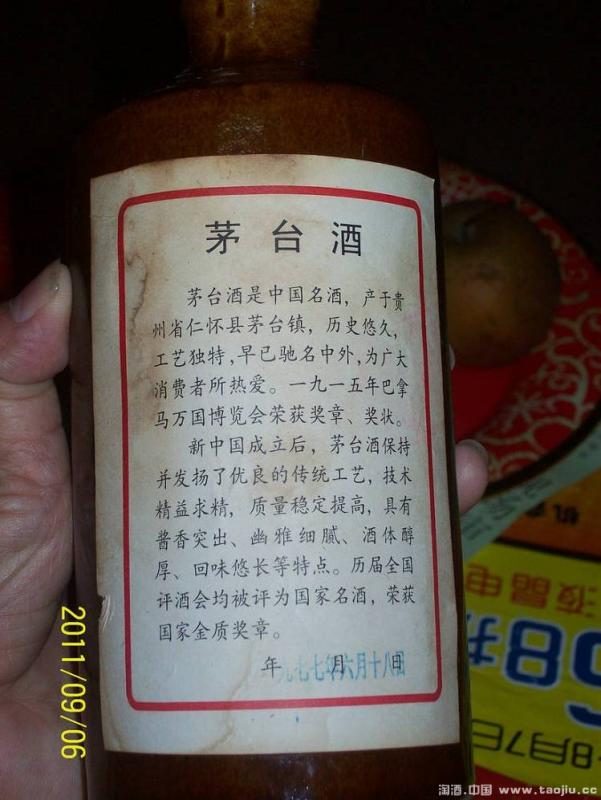 茅台酒
茅台酒是中国名酒，产于贵
州省仁怀县茅台镇，历史悠久，
工艺独特，早已驰名中外，为广大
消费者所热爱。一九一五年巴拿
马万国博览会荣获奖章、奖状。
新中国成立后，茅台酒保持
并发扬了优良的传统工艺，技术
精益求精，质量稳定提高，具有
酱香突出、幽雅细腻、酒体醇
厚、回味悠长等特点。历届全国
评酒会均被评为国家名酒，荣获
国家金质奖章。
年 月 日
九七七年六月十八日
2011/09/06
液晶电
8月7日
淘酒.中国 www.taojiu.cc